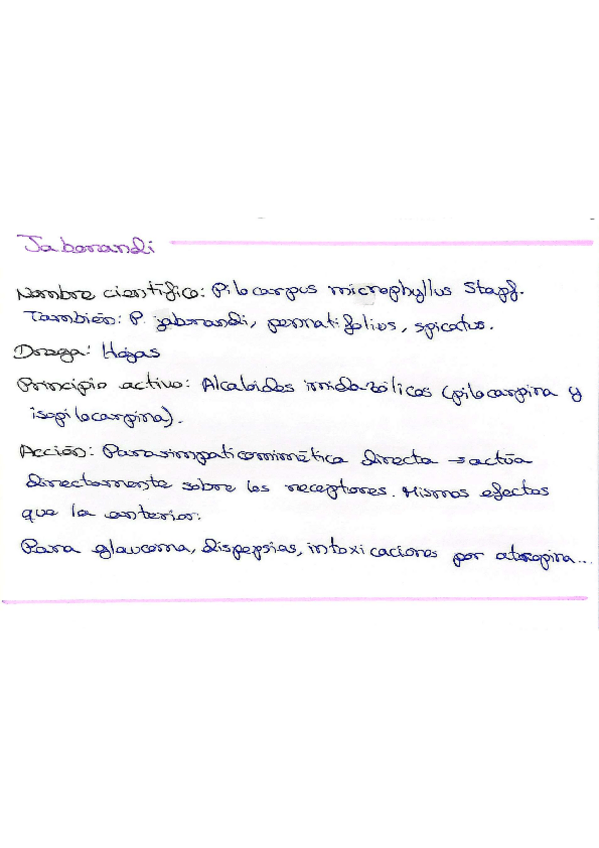 Jaborandi
Nombre científico: Pilocarpus microphyllus Stapf.
También: P. jaborandi, pennatifolius, spicatus.
Droga: Hojas
Principio activo: Alcaloides imidazólicos (pilocarpina y
isopilocarpina).
Acción: Parasimpaticomimética directa → actúa
directamente sobre los receptores. Mismos efectos
que la anterior:
Para glaucoma, dispepsias, intoxicaciones por atropina...